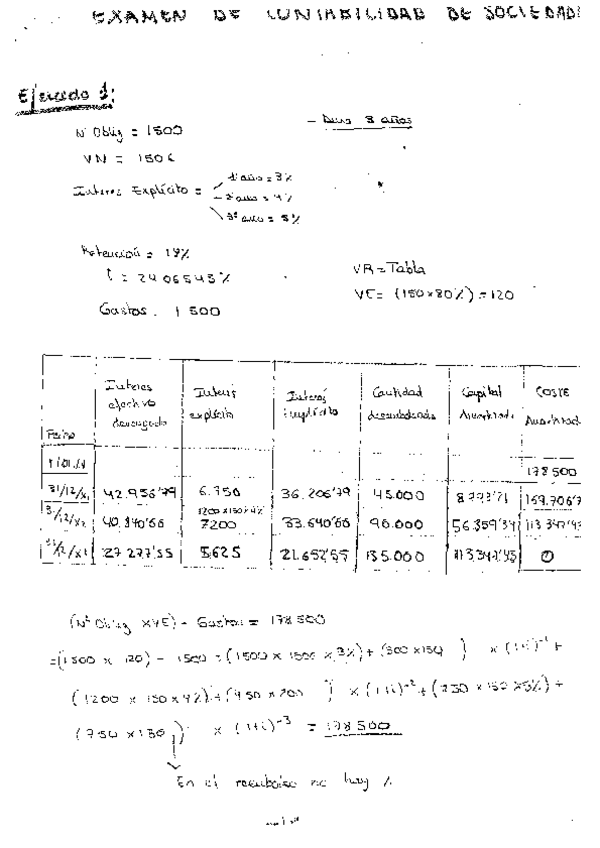 EXAMEN DE CONTABILIDAD DE SOCIEDAD
Ejercicio 1:
Nº Oblig = 1500
- Dura 3 años
VN = 150€
Interes Explícito =
1º año = 3%
2º año = 4%
3º año = 5%
Retención = 19%
i = 24'06543%
VR = Tabla
VE = (150x80%) = 120
Gastos. 1500
Fecha | Interes efectivo devengado | Interes explícito | Interés implícito | Cantidad desembolsada | Capital Amortizado | COSTE Amortizad
1/01/x1 | 178500
31/12/x1 | 42.956'79 | 6.750 | 36.206'79 | 45.000 | 8.793'21 | 169.706'7
1200x150x4%
31/12/x2 | 40.840'66 | 7200 | 33.640'66 | 90.000 | 56.359'34 | 113.347'45
27.277'55 | 5.625 | 21.652'55 | 135.000 | 113.347'45 | 0
(Nº Oblig x VE) - Gastos = 178500
= (1500 x 120) - 1500 = (1500 x 150 x 3%) + (300 x 150 ) x (1+i)⁻¹ +
(1200 x 150 x 4%) + (450 x 200 ) x (1+i)⁻² + (750 x 150 x 5%) +
(750 x 180) x (1+i)⁻³ = 178500
En el reembolso no hay %